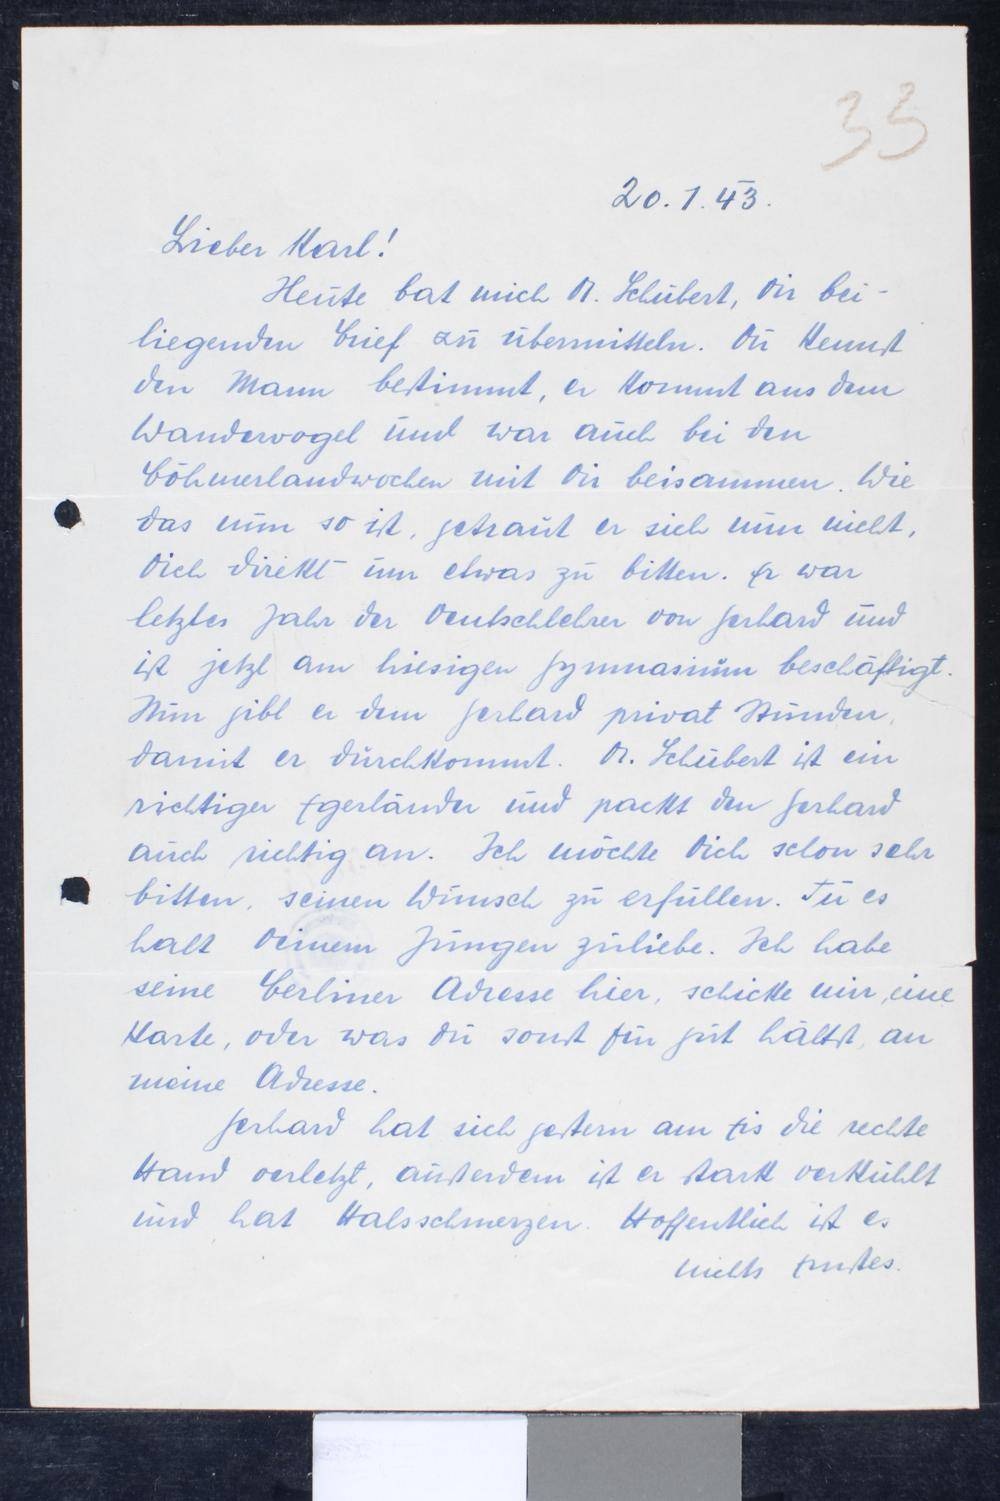 33
20.1.43.
Lieber Karl!
Heute bat mich Dr. Schubert, Dir bei-
liegenden Brief zu übermitteln. Du kennst
den Mann bestimmt, er kommt aus dem
Wandervogel und war auch bei den
Böhmerlandwochen mit Dir beisammen. Wie
das nun so ist, getraut er sich nun nicht,
Dich direkt um etwas zu bitten. Er war
letztes Jahr der Deutschlehrer von Gerhard und
ist jetzt am hiesigen Gymnasium beschäftigt.
Nun gibt er dem Gerhard privat Stunden,
damit er durchkommt. Dr. Schubert ist ein
richtiger Egerländer und packt den Gerhard
auch richtig an. Ich möchte Dich schon sehr
bitten, seinen Wunsch zu erfüllen. Tu es
halt Deinem Jungen zuliebe. Ich habe
seine Berliner Adresse hier, schicke mir eine
Karte, oder was Du sonst für gut hältst, an
meine Adresse.
Gerhard hat sich gestern am Eis die rechte
Hand verletzt, außerdem ist er stark verkühlt
und hat Halsschmerzen. Hoffentlich ist es
nichts Ernstes.